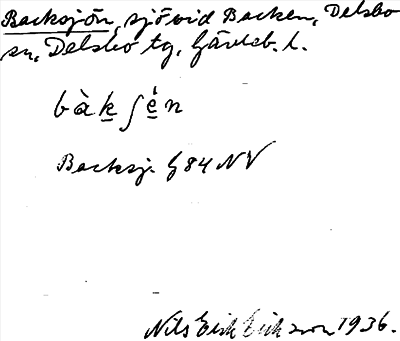 Backsjön, sjö vid Backen, Delsbo
sn, Delsbo tg, Gävleb. l.
bàk̲ʃė̲n
Backsj. G 84 NV
Nils Erik Eriksson 1936.